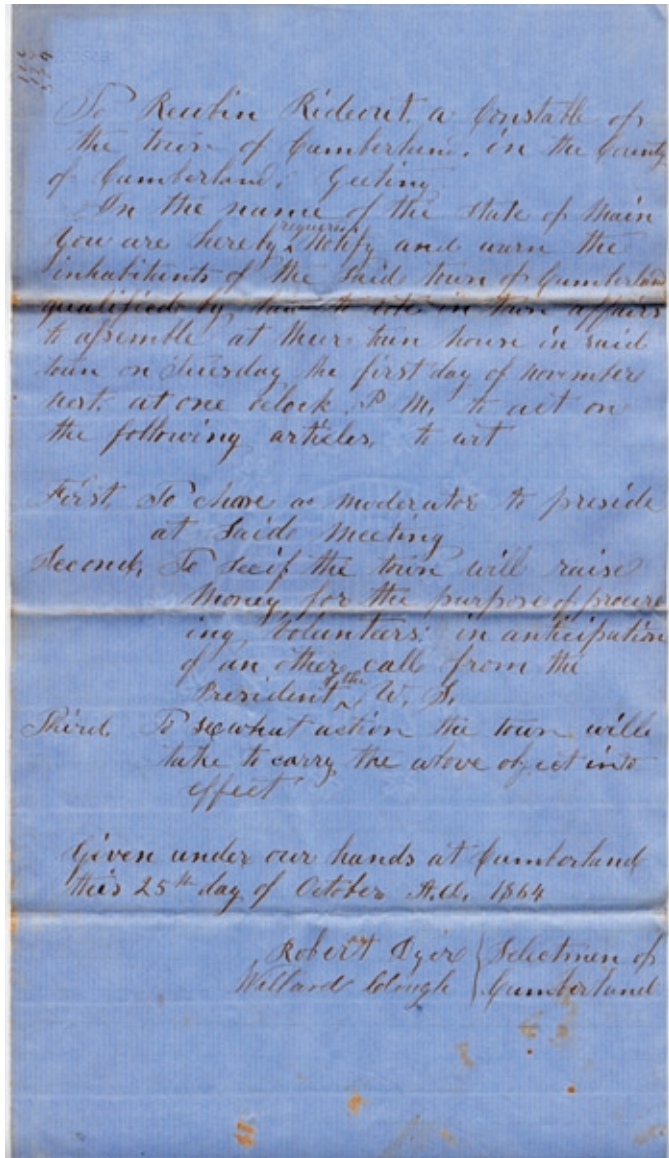 To Reubin Rideout, a Constable of
the town of Cumberland, in the County
of Cumberland, Geeting
In the name of the State of Main
required
you are hereby ^ Notify and warn the
inhabitants of the Said town of Cumberland
qualified by law to vote in town affairs
to assemble at their town house in said
town on Tuesday the first day of november
next. at one clock P.M. to act on
the following articles, to wit
First, To chose a moderator to preside
at Said Meeting
Second, To see if the town will raise
Money for the purpose of procure
ing Voluntiers in anticipation
of an other call from the
of the
President ^ U. S.
Third. To se what action the town will
take to carry the above object into
effect
Given under our hands at Cumberland
this 25th day of October A.D. 1864
Robert Dyer } Selectmen of
Willard Clough } Cumberland